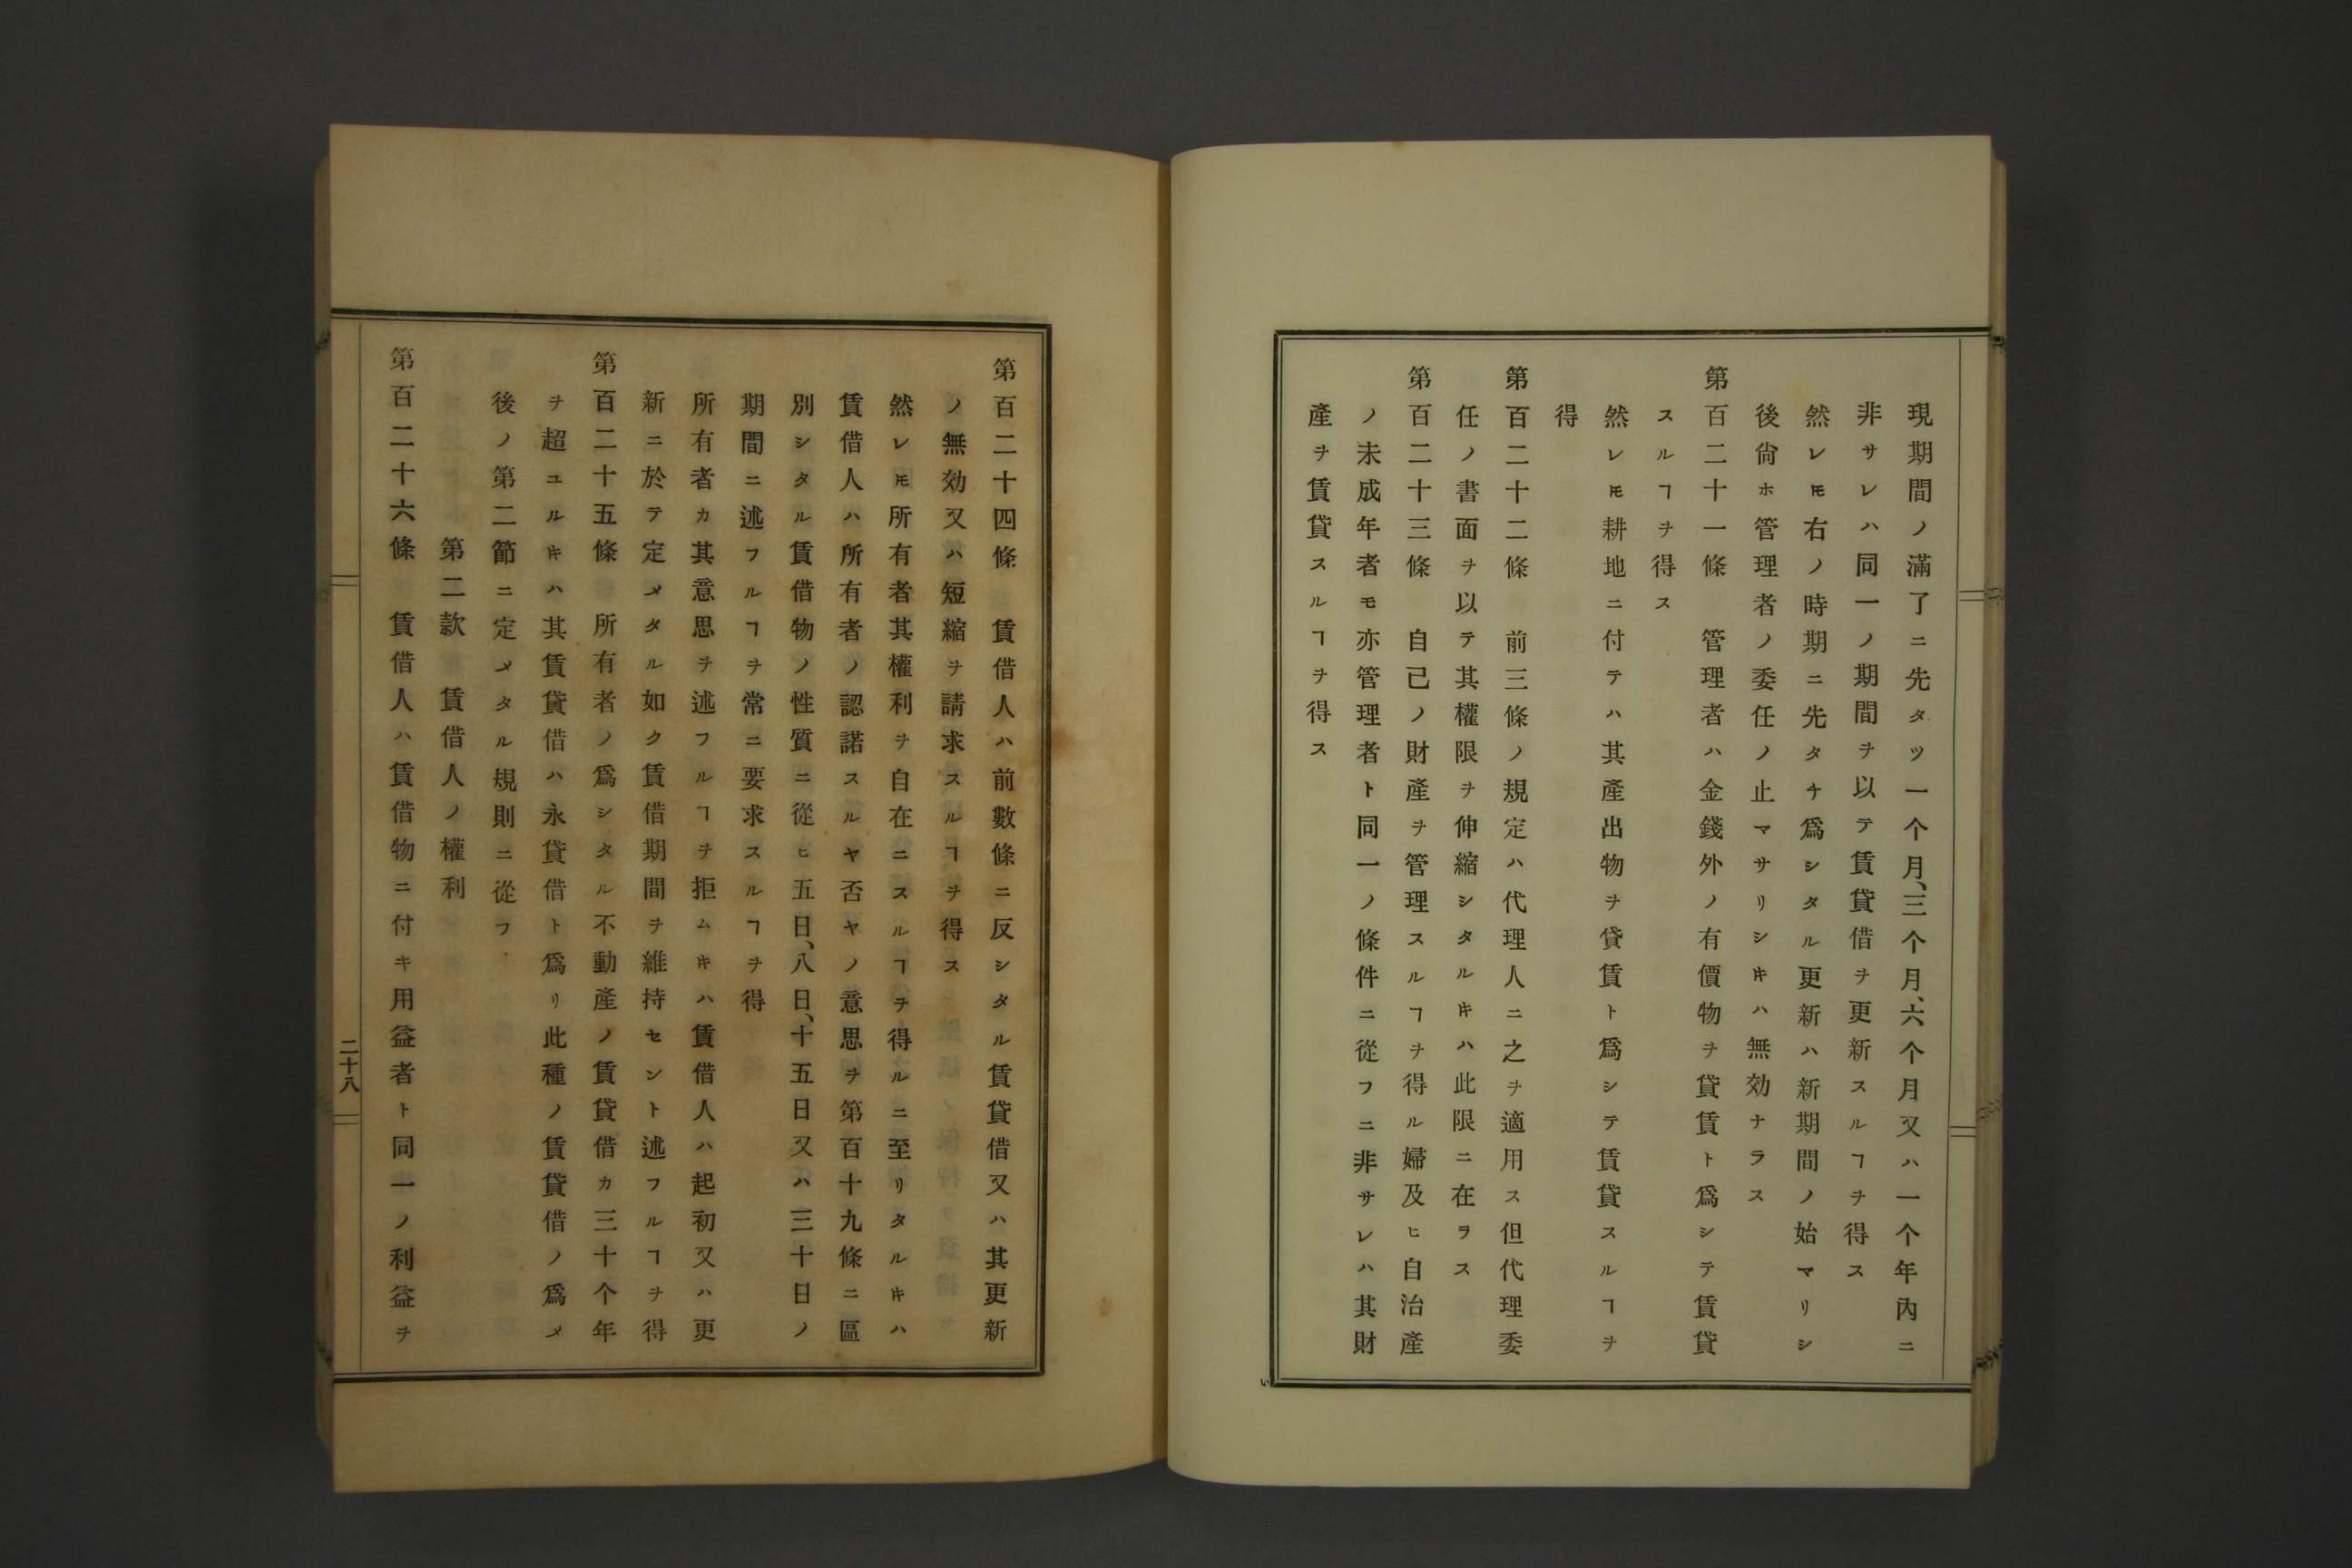 現期間ノ滿了ニ先タツ一个月、三个月、六个月又ハ一个年內ニ
非サレハ同一ノ期間ヲ以テ賃貸借ヲ更新スルヿヲ得ス
然レㇳモ右ノ時期ニ先タチ爲シタル更新ハ新期間ノ始マリシ
後尙ホ管理者ノ委任ノ止マサリシ𪜈ハ無効ナラス
第百二十一條　管理者ハ金錢外ノ有價物ヲ貸賃ト爲シテ賃貸
スルヿヲ得ス
然レ𪜈耕地ニ付テハ其產出物ヲ貸賃ト爲シテ賃貸スルヿヲ
得
第百二十二條　前三條ノ規定ハ代理人ニ之ヲ適用ス但代理委
任ノ書面ヲ以テ其權限ヲ伸縮シタルキハ此限ニ在ヲス
第百二十三條　自己ノ財產ヲ管理スルヿヲ得ル婦及ヒ自治產
ノ未成年者モ亦管理者ト同一ノ條件ニ從フニ非サレハ其財
產ヲ賃貸スルヿヲ得ス
第百二十四條　賃借人ハ前數條ニ反シタル賃貸借又ハ其更新
ノ無効又ハ短縮ヲ請求スルヿヲ得ス
然レ𪜈所有者其權利ヲ自在ニスルヿヲ得ルニ至リタルキハ
賃借人ハ所有者ノ認諾スルヤ否ヤノ意思ヲ第百十九條ニ區
別シタル賃借物ノ性質ニ從ヒ五日、八日、十五日又ハ三十日ノ
期間ニ述フルヿヲ常ニ要求スルヿヲ得
所有者カ其意思ヲ述フルヿヲ拒ムキハ賃借人ハ起初又ハ更
新ニ於テ定メタル如ク賃借期間ヲ維持セント述フルヿヲ得
第百二十五條　所有者ノ爲シタル不動產ノ賃貸借カ三十个年
ヲ超ユルキハ其賃貸借ハ永貸借ト爲リ此種ノ賃貸借ノ爲メ
後ノ第二節ニ定メタル規則ニ從フ
第二款　賃借人ノ權利
第百二十六條　賃借人ハ賃借物ニ付キ用益者ト同一ノ利益ヲ
二十八